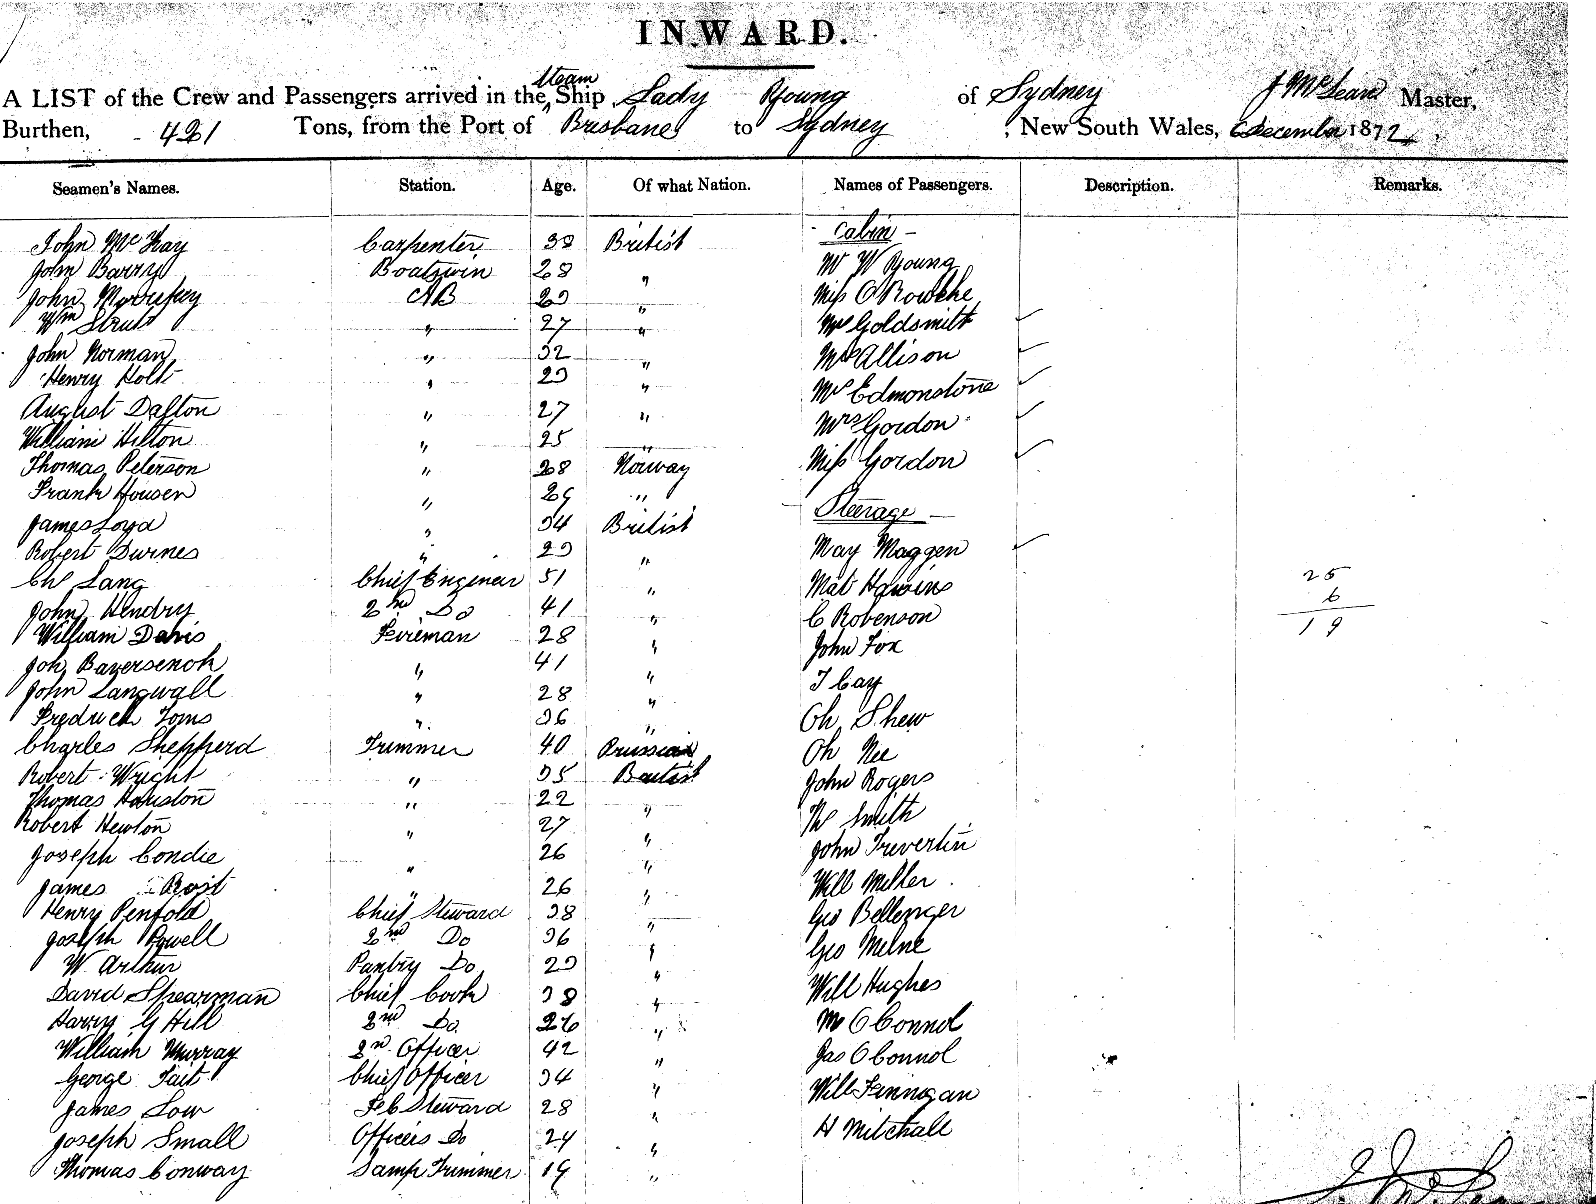 INWARD.
A LIST of the Crew and Passengers arrived in the Steam Ship Lady Young of Sydney J McLean Master,
Burthen, 421 Tons, from the Port of Brisbane to Sydney, New South Wales, 6 December 1872.
Seamen's Names. Station. Age. Of what Nation. Names of Passengers. Description. Remarks.
Cabin
John McKay Carpenter 38 British
John Barry Boatswin 28 " Mr W Young
John AB " Miss O Rowthe
Wm Strutt " 27 " Mr Goldsmith
John Norman " 32 " Mrs Allison
Henry Holt " " Mr Edmonstone
August Dafton " 27 " Mrs Gordon
William Hilton " 25 " Miss Gordon
Thomas Peterson " 28 Norway
Frank Housen " 29 " Steerage
James Loyd " 34 British
Robert Durnes " " May Maggen
Chs Lang Chief Engineer 51 " Mat 25
John Hendry 2nd Do 41 " C Robenson 6
William Davis Fireman 28 " John Fox 19
Joh Bayersenoh " 41 " T Cay
John Langwall " 28 " Oh Shew
Fredrich Toms " 36 " Oh Nee
Charles Shepperd Trimmer 40 Prussian John Rogers
Robert Wright " 35 British Th Smith
Thomas Houston " 22 " John Trevertin
Robert Hewton " 27 " Will Miller
Joseph Condie " 26 " Geo Bellenger
James " 26 " Geo Milne
Henry Penfold Chief Steward 38 " Will Hughes
Joseph Powell 2nd Do 36 " Mr O Connol
W. Arthur Pantry Do " Jas O Connol
David Shearman Chief Cook 38 " Will Finnigan
Harry G Hill 2nd Do. 26 " H Mitchall
William Murray 2nd Officer 42 "
George Tait Chief Officer 34 "
James Low Steward 28 "
Joseph Small Officers Do 24 "
Thomas Conway Lamp Trimmer 19 "